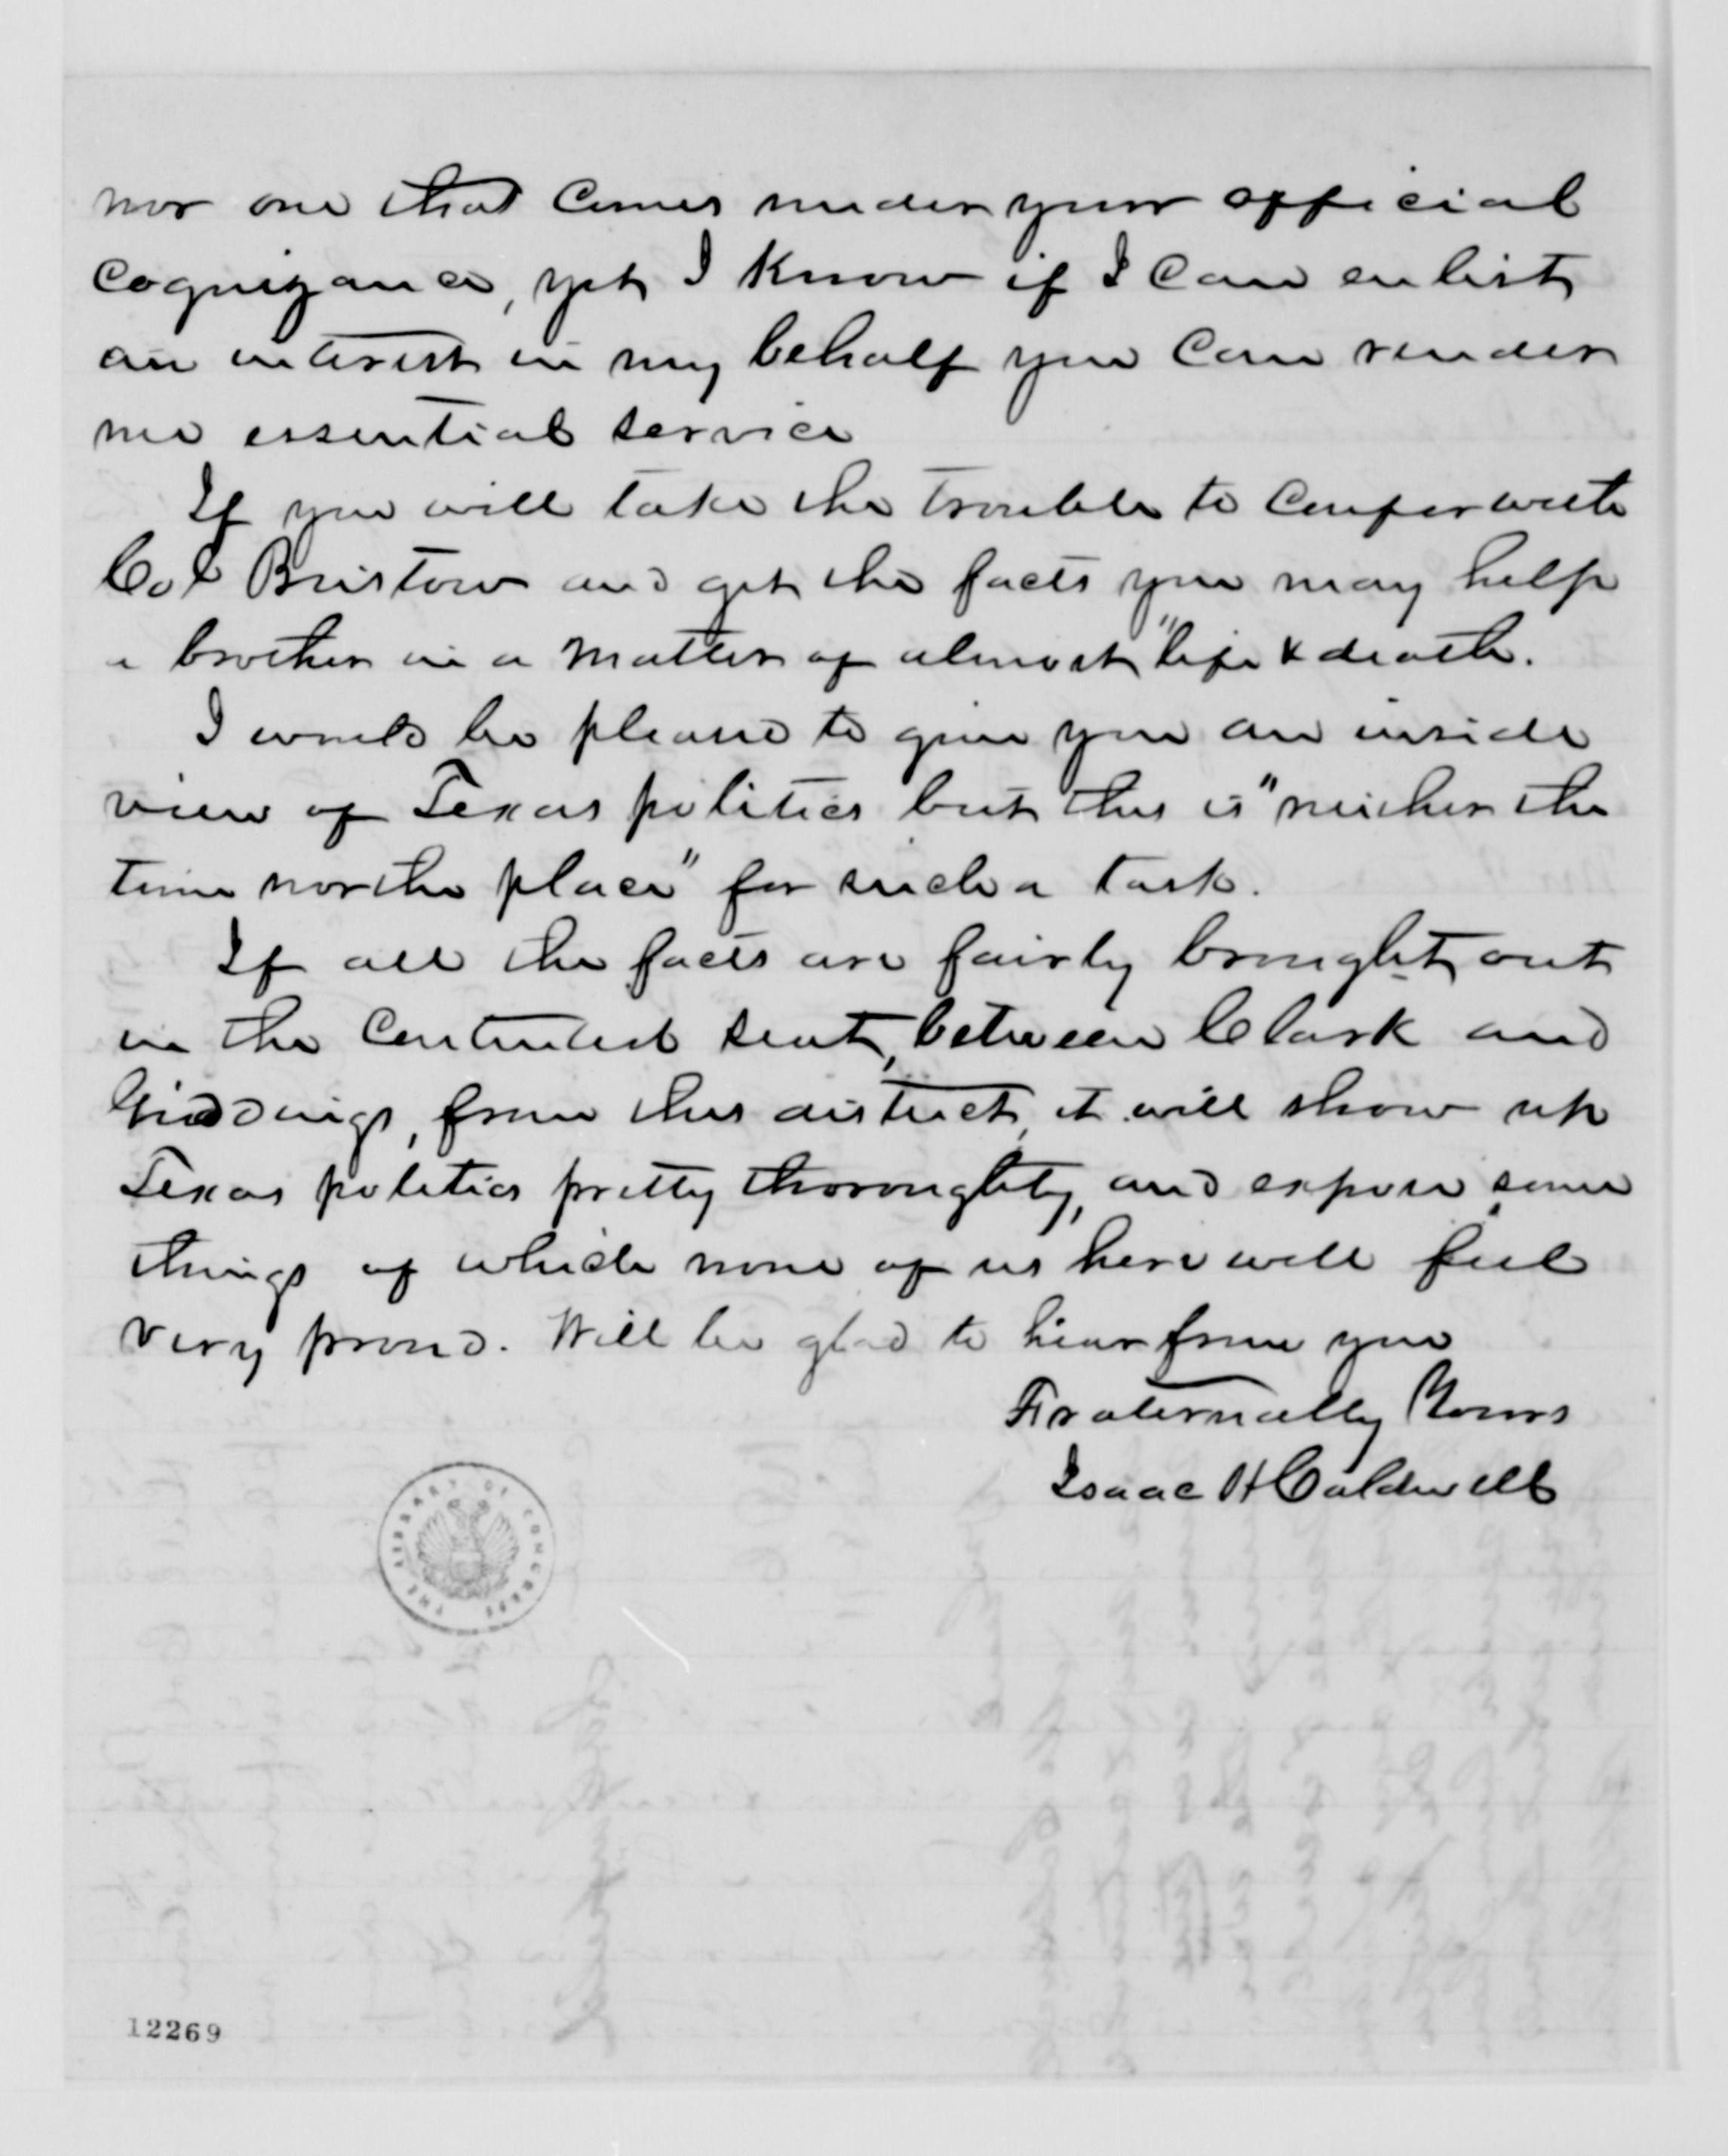 nor one that comes under your official
cognizance, yet I know if I can enlist
an interest in my behalf you can render
me essential service
If you will take the trouble to confer with
Col Bristow and get the facts you may help
a brother in a matter of almost "life & death.
I would be pleased to give you an inside
view of Texas politics but this is "neither the
time nor the place" for such a task.
If all the facts are fairly brought out
in the contested seat, between Clark and
Giddings, from this district, it will show up
Texas politics pretty thoroughly, and expose some
things of which none of us here will feel
very proud. Will be glad to hear from you
Fraternally Yours
Isaac H Caldwell
THE LIBRARY OF CONGRESS
12269